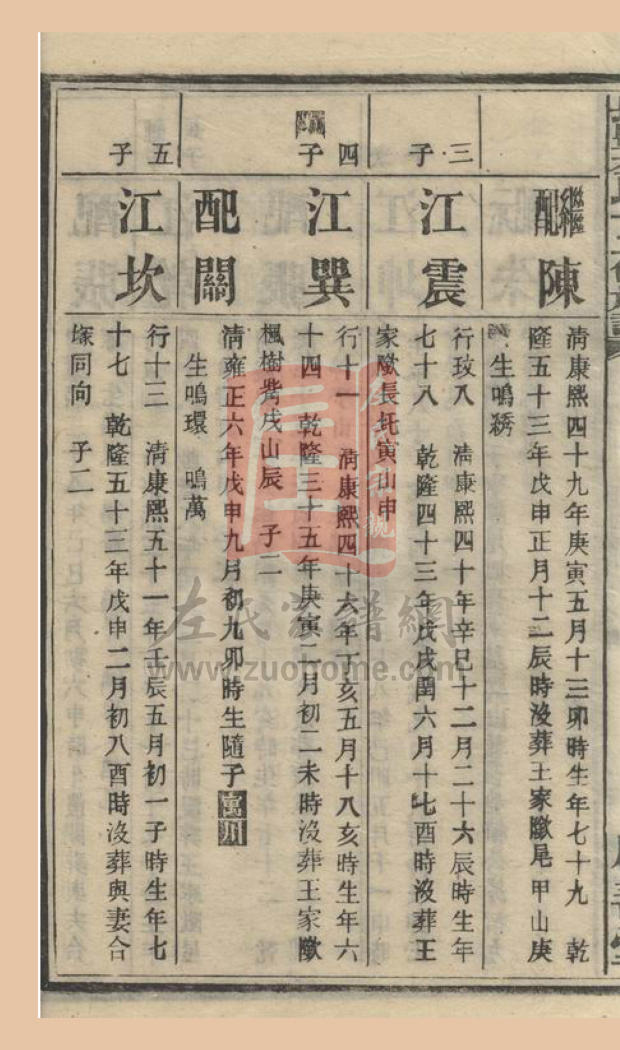 繼配陳
清康熙四十九年庚寅五月十三卯時生年七十九 乾
隆五十三年戊申正月十二辰時沒葬王家歘尾甲山庚
生鳴
三子
江震
行玫八 清康熙四十年辛巳十二月二十六辰時生年
七十八 乾隆四十三年戊戌閏六月十七酉時沒葬王
家歘長圫寅山申
四子
江巽
行十一 清康熙四十六年丁亥五月十八亥時生年六
十四 乾隆三十五年庚寅二月初二未時沒葬王家歘
楓樹戌山辰 子二
配關
清雍正六年戊申九月初九卯時生隨子寓川
生鳴環 鳴萬
五子
江坎
行十三 清康熙五十一年壬辰五月初一子時生年七
十七 乾隆五十三年戊申二月初八酉時沒葬與妻合
塚同向 子二
左氏家譜網
www.zuohome.com